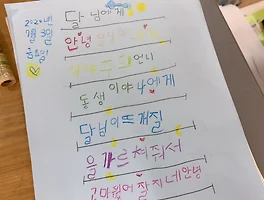 2024년
7월 3일
달님에게
안녕
언니
동생이야 나에게
달님이 뜨개질
을 가르쳐줘서
고마웠어 잘지네 안녕